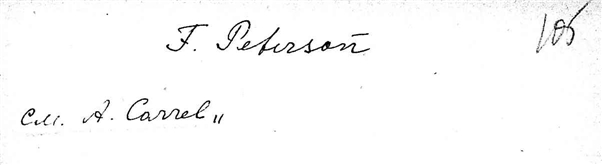 F. Peterson 105
см. A. Carrel „